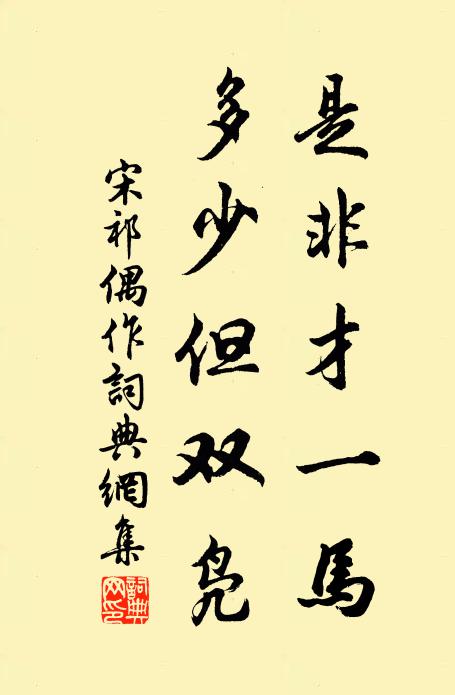 是非才一馬
多少但双凫
宋祁偶作詞典網集
詞典网印